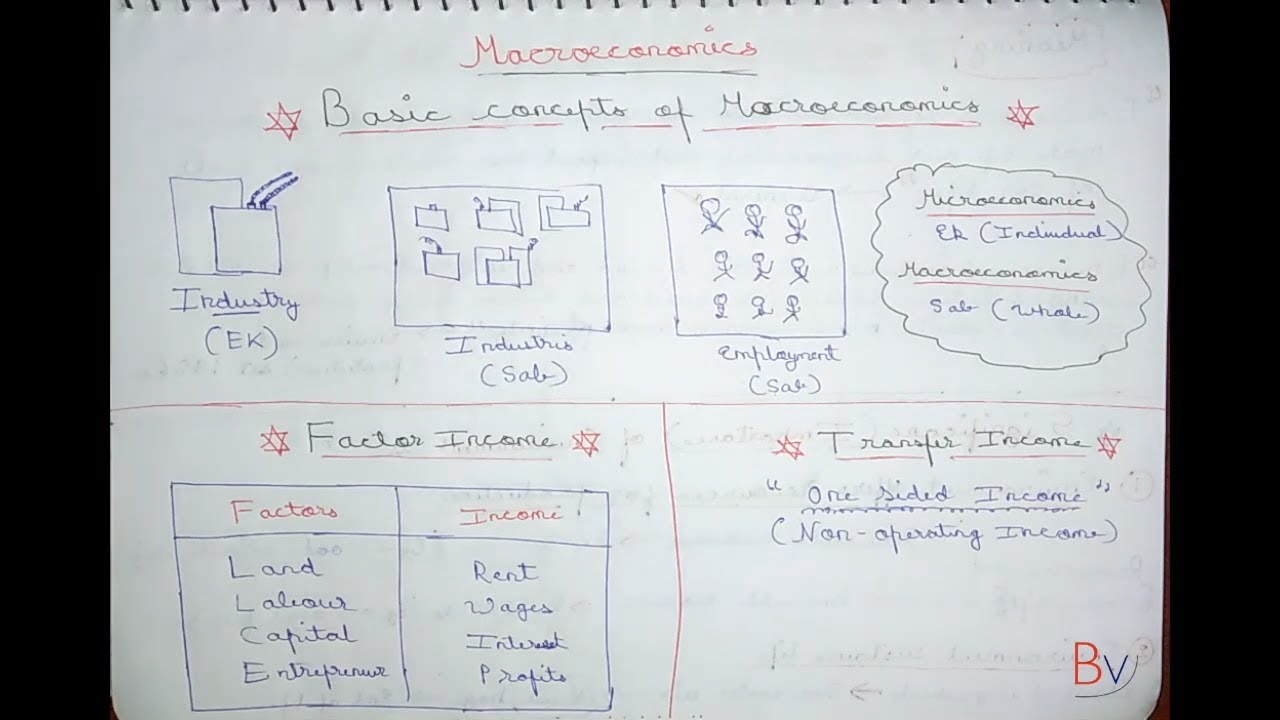 Macroeconomics
Basic concepts of Macroeconomics
Industry
(EK)
Industris
(Sab)
Employment
(Sab)
Microeconomics
EK (Individual)
Macroeconomics
Sab (Whole)
Factor Income
Factors Income
Land Rent
Labour Wages
Capital Interest
Entrepreneur Profits
Transfer Income
"One sided Income"
(Non-operating Income)
BV